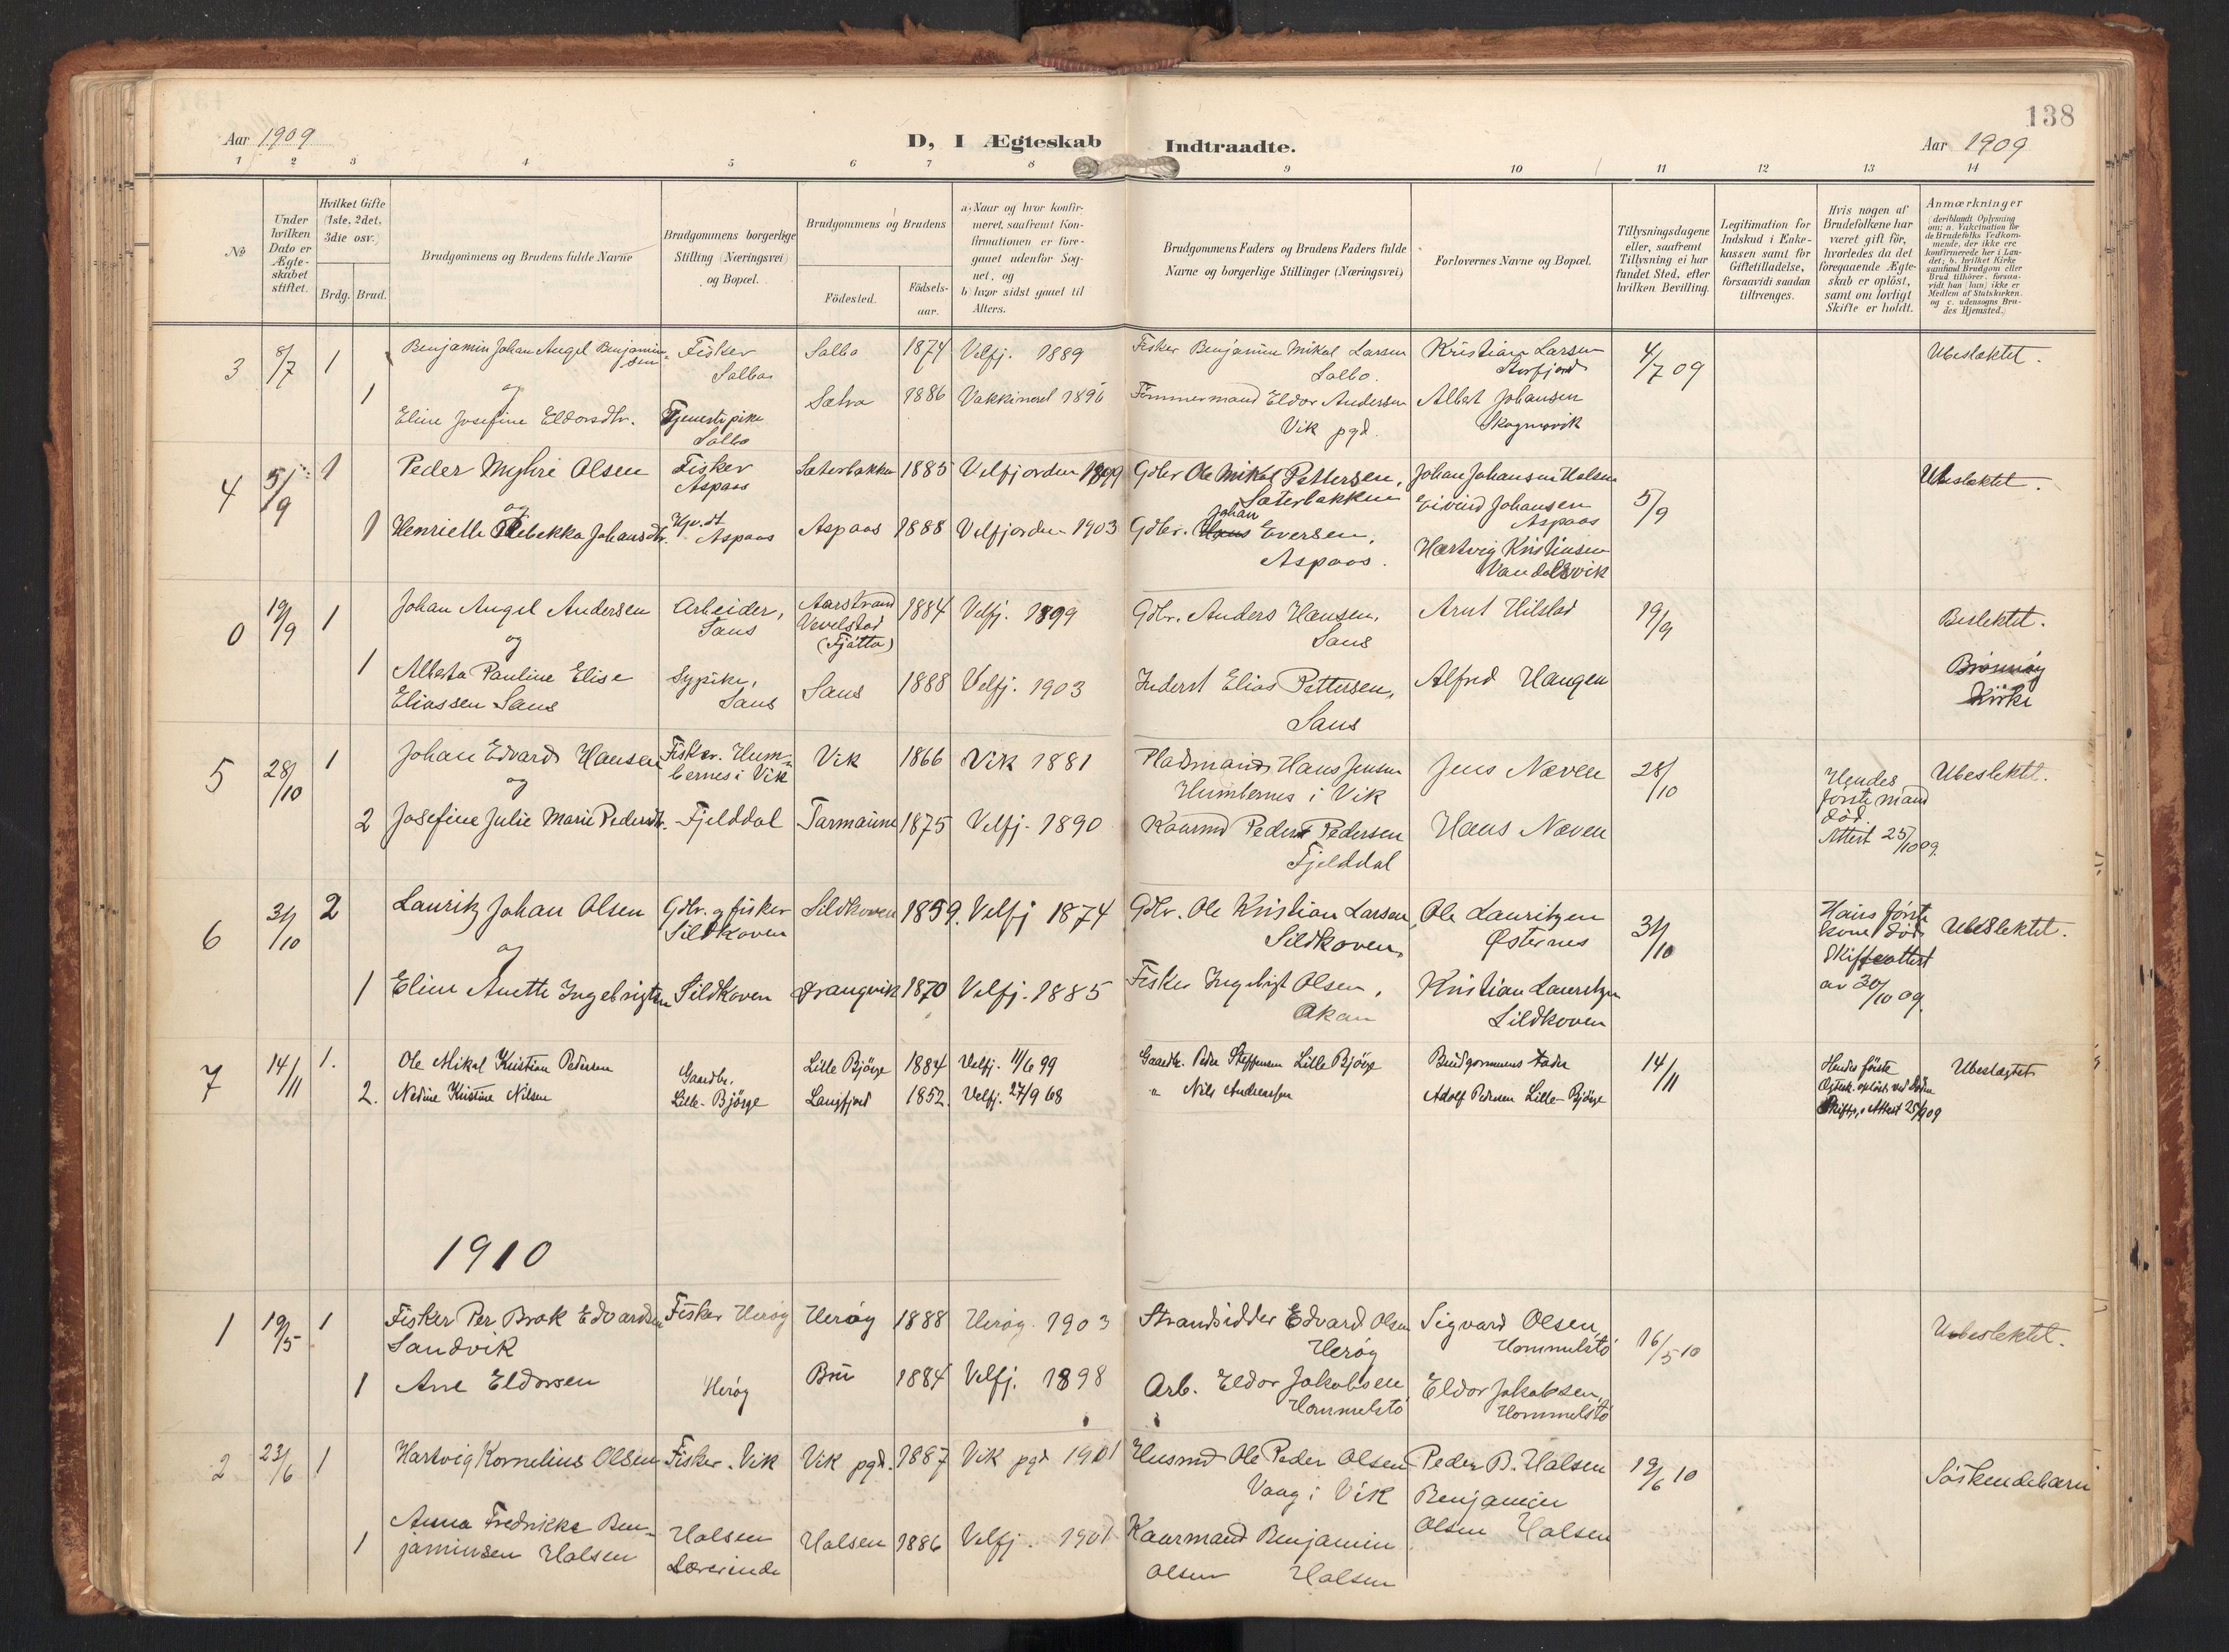 138
Aar 1909
D, I Ægteskab Indtraadte.
Aar 1909
1 2 3 4 5 6 7 8 9 10 11 12 13 14
№
Under hvilken Dato er Ægteskabet stiftet.
Hvilket Gifte (1ste, 2det, 3die osv.)
Brdg. Brud.
Brudgommens og Brudens fulde Navne
Brudgommens borgerlige Stilling (Næringsvei) og Bopæl.
Brudgommens og Brudens
Fødested.
Fødselsaar.
a) Naar og hvor konfirmeret, saafremt Konfirmationen er foregaaet udenfor Sognet, og
b) hvor sidst gaaet til Alters.
Brudgommens Faders og Brudens Faders fulde Navne og borgerlige Stillinger (Næringsvei)
Forlovernes Navne og Bopæl.
Tillysningsdagene eller, saafremt Tillysning ei har fundet Sted, efter hvilken Bevilling.
Legitimation for Indskud i Enkekassen samt for Giftetilladelse, forsaavidt saadan tiltrænges.
Hvis nogen af Brudefolkene har været gift før, hvorledes da det foregaaende Ægteskab er opløst, samt om lovligt Skifte er holdt.
Anmærkninger (deriblandt Oplysning om: a. Vakcination for de Brudefolks Vedkommende, der ikke ere konfirmerede her i Landet; b. hvilket Kirkesamfund Brudgom eller Brud tilhører, forsaavidt han (hun) ikke er Medlem af Statskirken, og c. udensogns Brudes Hjemsted.)
3 8/7 1 Benjamin Johan Angel Benjaminsen Fisker Salbo Salbo 1874 Velfj. 1889 Fisker Benjamin Mikal Larsen Salbo. Kristian Larsen Storfjord 4/7 09 Ubeslektet.
og
1 Eline Josefine Eldorsdtr. Tjenestepike Salbo 1886 Tømmermand Eldor Andersen Vik pgd. Albert Johansen
4 5/9 1 Peder Myhre Olsen Fisker Aspaas Sæterbakken 1885 Velfjorden 1899 Gdbr Ole Mikal Pettersen, Sæterbakken Johan Johansen Halsen 5/9 Ubeslektet.
og
1 Henriette Rebekka Johansdtr. Aspaas Aspaas 1888 Velfjorden 1903 Gdbr. Johan Eversen, Aspaas. Eivind Johansen Aspaas
Hartvig Kristensen Vandalsvik
0 19/9 1 Johan Angel Andersen Arbeider, Saus Aarstrand Vevelstad (Tjøtta) 1884 Velfj. 1899 Gdbr. Anders Hansen, Saus Arnt Hilstad 19/9 Beslektet.
og
1 Alberta Pauline Elise Eliassen Saus Sypike, Saus Saus 1888 Velfj. 1903 Inderst Elias Pettersen, Saus Alfred Haugen Brønnøy Kirke
5 28/10 1 Johan Edvard Hansen Fisker. Humbernes i Vik Vik 1866 Vik 1881 Pladsmand Hans Jensen Humbernes i Vik Jens Næven 28/10 Hendes første mand død. Attest 25/10 09. Ubeslektet.
og
2 Josefine Julie Marie Pedersdtr. Fjelddal Tarmaune 1875 Velfj. 1890 Kaarmd Peder Pedersen Fjelddal Hans Næven
6 31/10 2 Lauritz Johan Olsen Gdbr. og fisker Sildhaven Sildhaven 1859. Velfj 1874 Gdbr. Ole Kristian Larsen, Sildhaven, Ole Lauritzen Østernes 31/10 Hans første kone død, Skifteattest av 30/10 09. Ubeslektet.
og
1 Eline Anette Ingebrigtsen Sildhaven Strangvik 1870 Velfj. 1885 Fisker Ingebrigt Olsen, Kristian Lauritzen Sildhaven
7 14/11 1. Ole Mikal Kristian Pedersen Gaardbr. Lille-Bjørge Lille Bjørge 1884 Velfj. 11/6 99 Gaardbr. Peder Steffensen Lille Bjørge Brudgommens Fader 14/11 Hendes første Ægtesk. opløst ved Døden Skifte, Attest 25/9 09 Ubeslægtet
2. Nedine Kristine Nilsen Langfjord 1852. Velfj. 27/9 68 " Nils Andreassen Adolf Pedersen Lille-Bjørge
1910
1 19/5 1 Fisker Per Brok Edvardsen Sandvik Fisker Herøy Herøy 1888 Herøy 1903 Strandsidder Edvard Olsen Herøy Sigvard Olsen, Hommelstø 16/5 10 Ubeslektet.
1 Ane Eldorsen Herøy Bru 1884 Velfj. 1898 Arb. Eldor Jakobsen Hommelstø Eldor Jakobsen, Hommelstø
2 23/6 1 Hartvig Kornelius Olsen Fisker. Vik Vik pgd. 1887 Vik pgd 1901 Husmd Ole Peder Olsen Vaag i Vik Peder B. Halsen 19/6 10 Søskendebarn
1 Anna Fredrikke Benjaminsen Halsen Halsen Lærerinde Halsen 1886 Velfj. 1901 Kaarmand Benjamin Olsen Halsen Benjamin Olsen Halsen